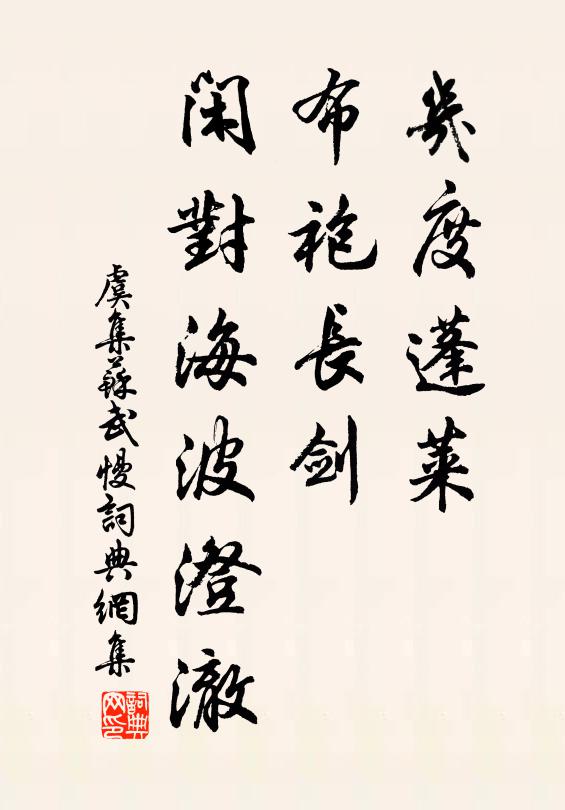 幾度蓬萊
布袍長劍
閑對海波澄澈
虞集蘇武慢詞典網集
詞典網印